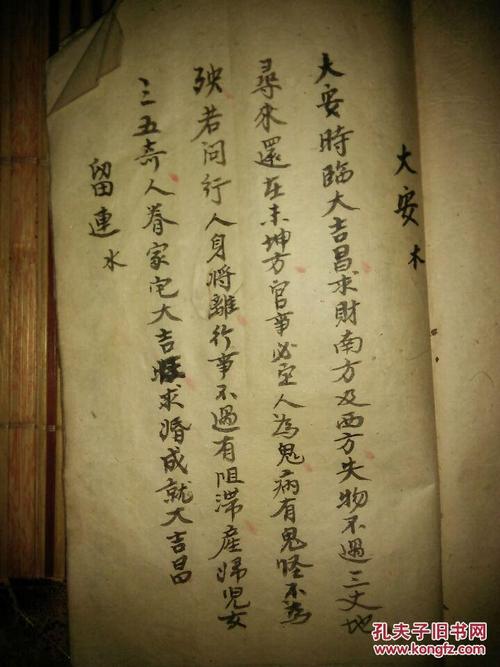 大安木
大安時臨大吉昌求財南方及西方失物不過三丈地
尋來還在未坤方官事必空人為鬼病有鬼怪不為
殃若问行人身將離行事不過有阻滞產婦兒女
三五奇人眷家宅大吉求婚成就大吉昌
留連水
孔夫子旧书网
www.kongfz.com